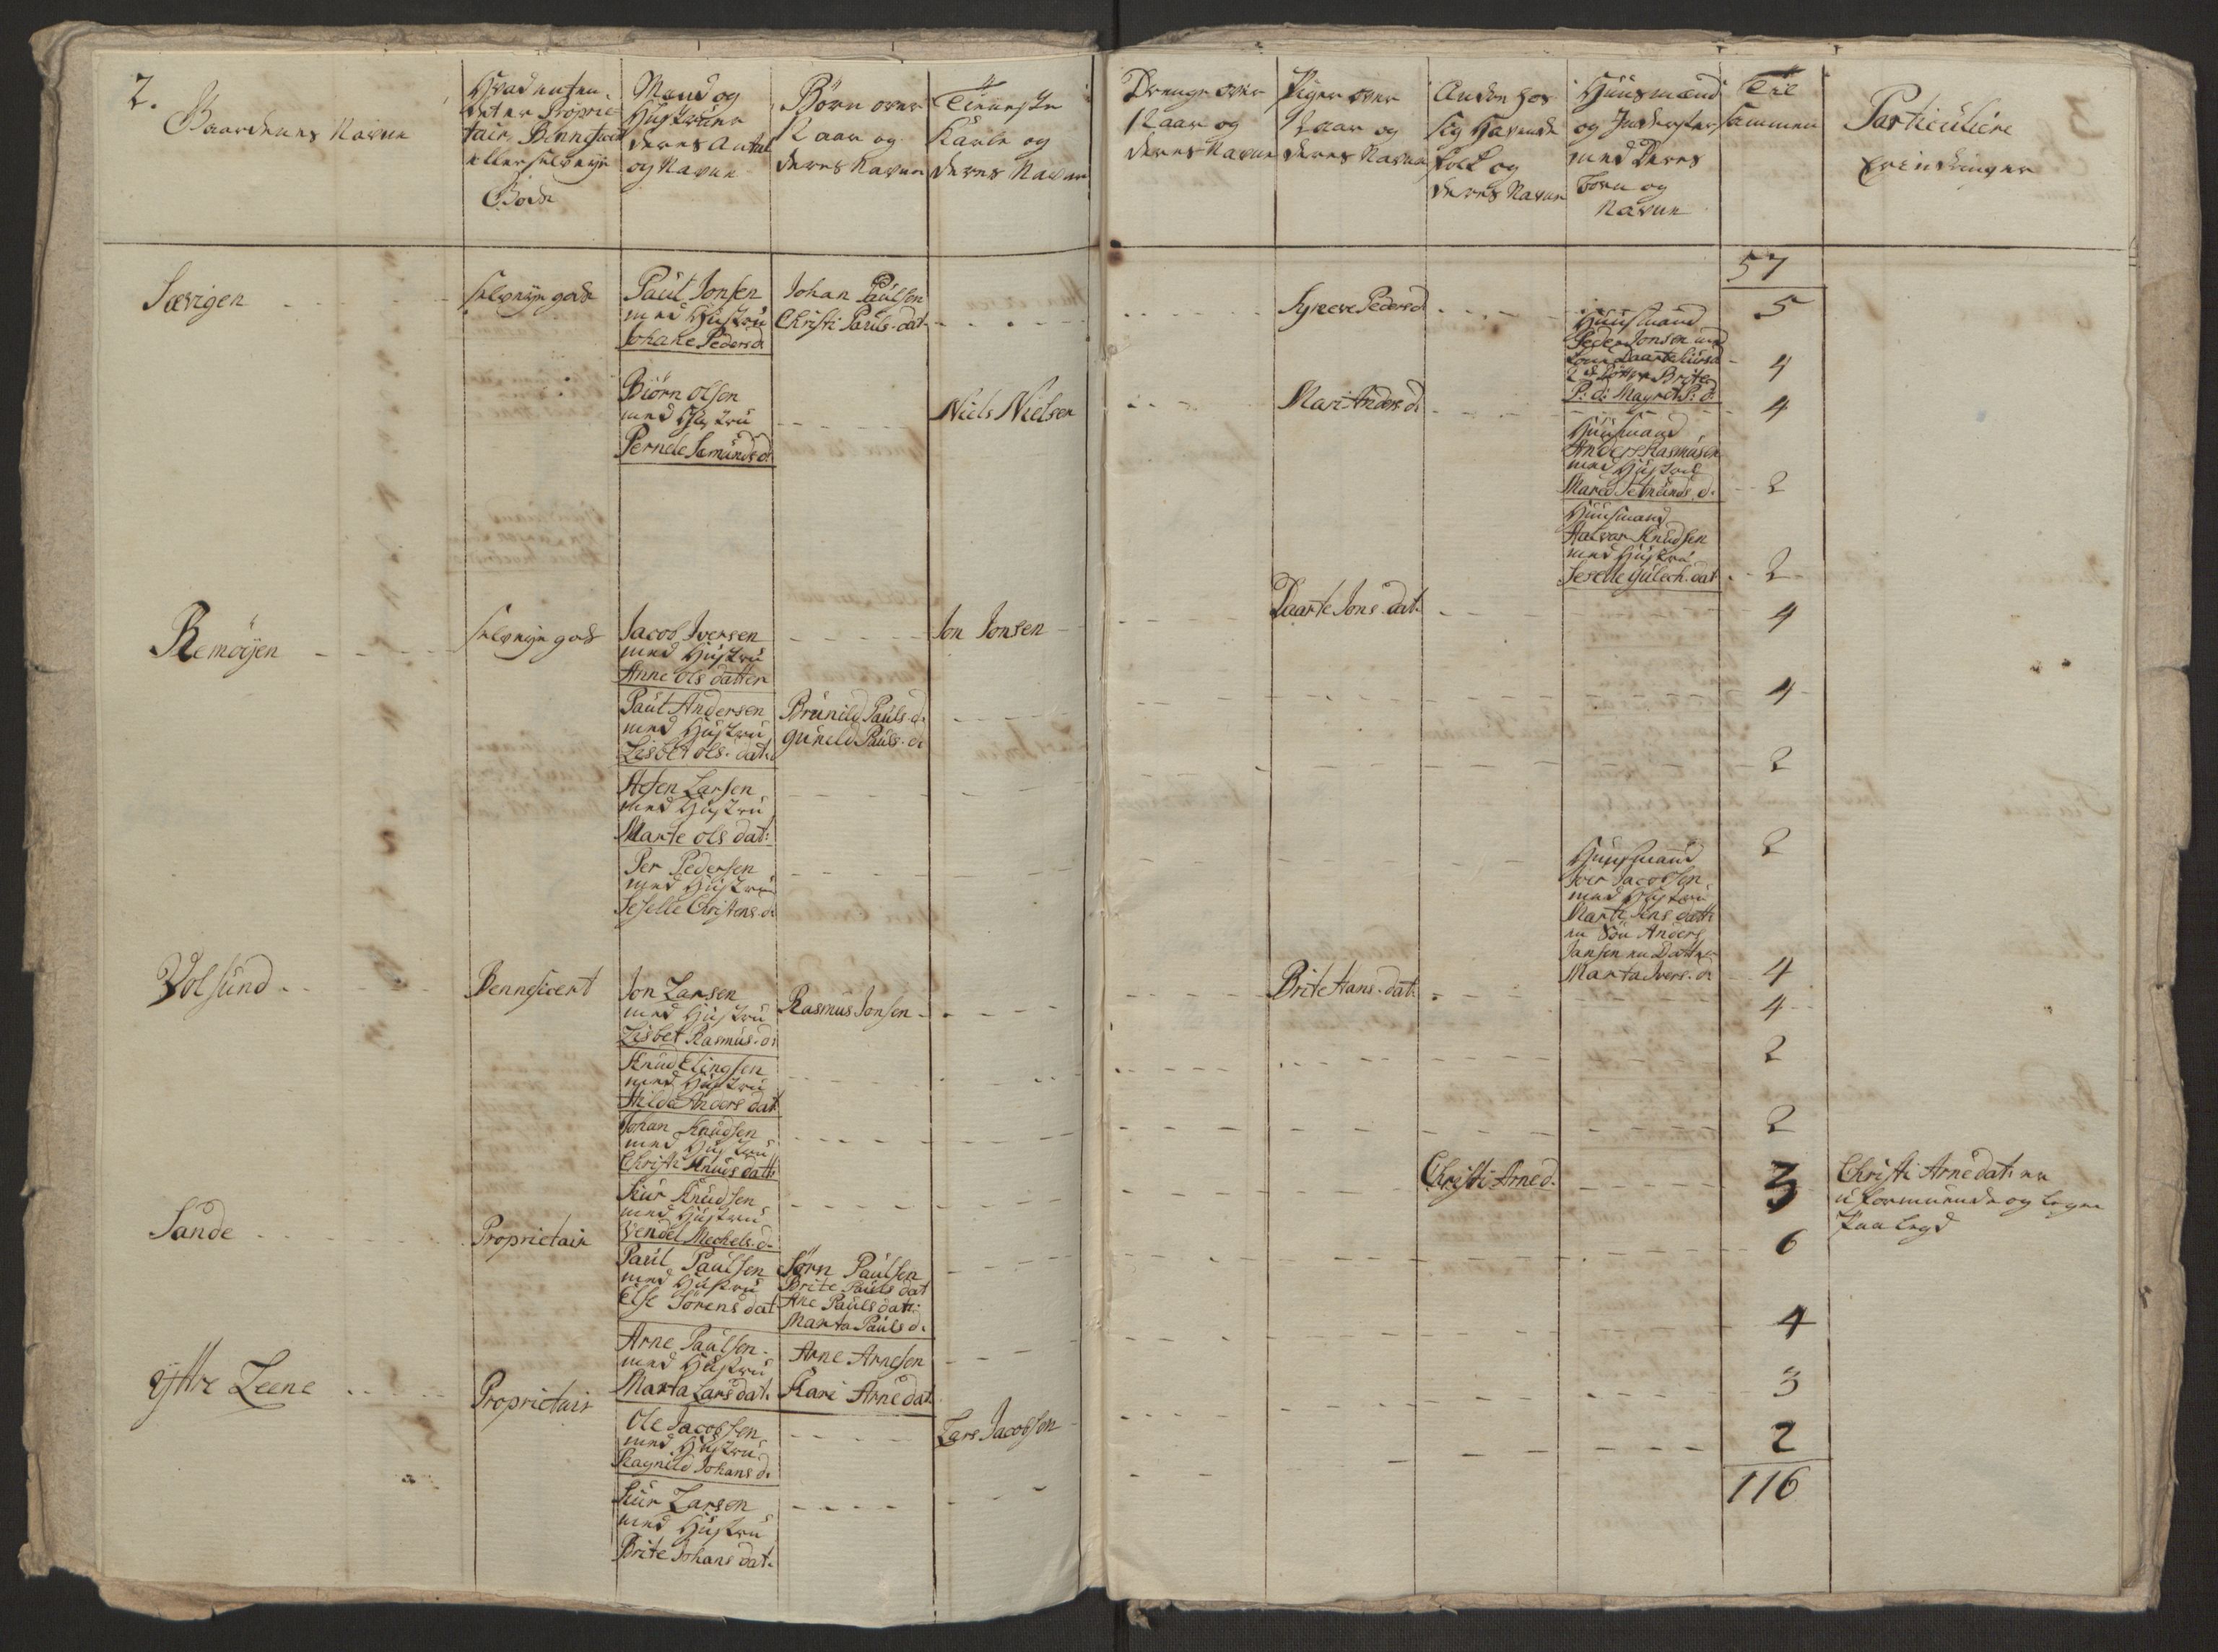 2.
Gaardenes Navne
Hvad enten
det er Proprie
tair, Bennificed
eller selveyer
Gods
Mand og
Hustruer
deres Antal
og Navne
Börn over
12 aar og
deres Navne
Tienneste
Karle og
deres Navne
Drenge over
12 aar og
deres Navne
Piger over
12 aar og
deres Navne
Anden hos
sig Havende
folk og
deres Navne
Huusmænd
og Inderster
med Deres
Börn og
Navne
Til
sammen
Particuliere
Erindringer
57
Særigen
selveyer gods
Paul Jonsen
med Hustru
Johane Pedersd
Johan Paulsen
Christi Pauls-dat
Syneve Pedersd
5
Huusmand
Peder Jonsen med
kone Daarte
2de Döttre Brite
P: d: Magret P: d
4
Biörn Olsen
med Hustru
Pernele Semunds d
Niels Nielsen
Mari Anders d:
4
Huusmand
Anders Rasmusen
med Hustru
Mared Setmunds. d.
2
Huusmand
Halvor Knudsen
med Hustru
Seselle Gulech. dat
2
Remöyen
selveyer gods
Jacob Iversen
med Hustru
Anne Ols datter
Jon Jonsen
Daarte Jons. dat:
4
Paul Andersen
med Hustru
Lisbet Ols. dat:
Brunild Pauls. d.
Guneld Pauls. d:
4
Stefen Larsen
med Hustru
Marte Ols dat:
2
Per Pedersen
med Hustru
Seselle Christens. d:
2
Huusmand
Iver Jacobsen
med Hustru
Marte Jens datt:
en Sön Anders
Jansen en Datter
Marta Ivers. d:
4
Volsund
Bennificert
Jon Larsen
med Hustru
Lisbet Rasmus. d:
Rasmus Jonsen
Brite Hans. dat:
4
Knud Elingsen
med Hustru
Hilde Anders dat
2
Johan Knudsen
med Hustru
Christi Knuds datt:
2
Siur Knudsen
med Hustru
Vendel Mechels. d.
Christi Arne d.
3
Christi Arne dat: er
u formuende og legger
paa legd
Sande
Proprietair
Paul Paulsen
med Hustru
Else Sörens dat
Sörn Paulsen
Brite Pauls dat
Ane Pauls datt:
Marta Pauls d.
6
Arne Paulsen
med Hustru
Marta Lars dat.
Arne Arnesen
Kari Arne dat.
4
Yttre Leene
Proprietair
Ole Jacobsen
med Hustru
Ragnild Johans d.
Lars Jacobsen
3
Siur Larsen
med Hustru
Brite Johans dat.
2
116